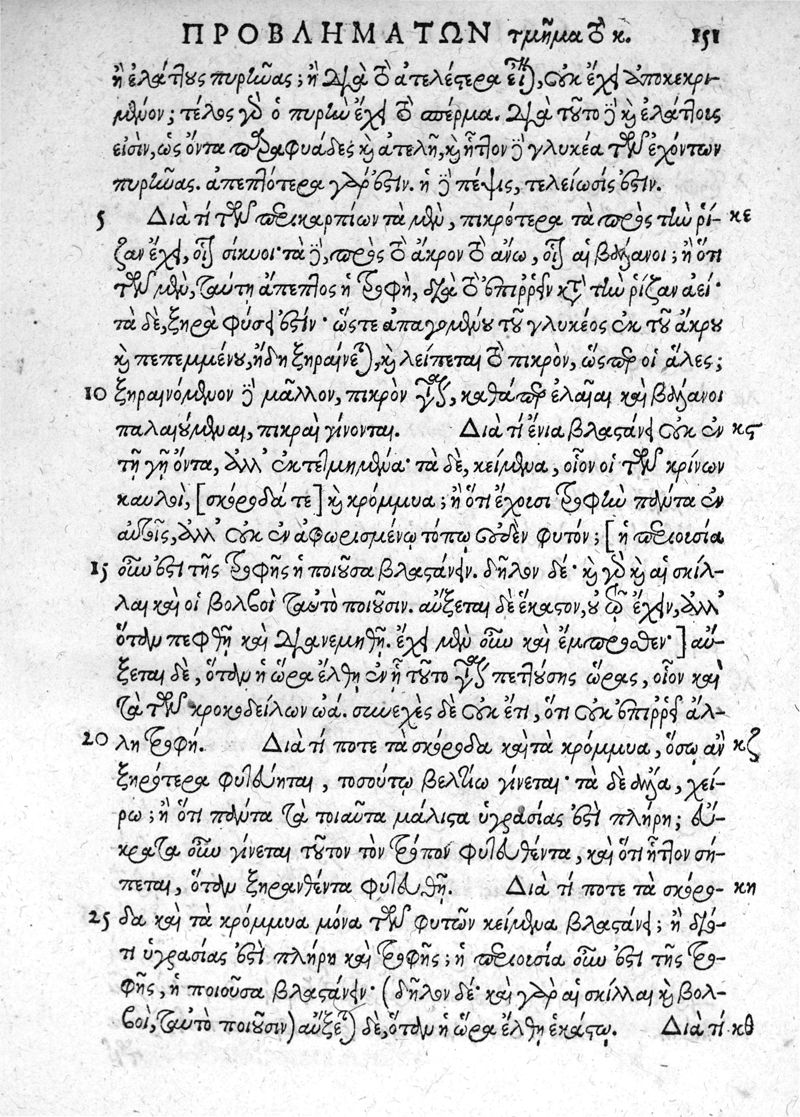 ΠΡΟΒΛΗΜΑΤΩΝ τμῆμα τὸ κ. 151
ἢ ἐλάττους πυρῆνας; ἢ διὰ τὸ ἀτελέστερα εἶναι, οὐκ ἔχει ἀποκεκρι-
μένον; τέλος γὰρ ὁ πυρὴν ἔχει τὸ σπέρμα. διὰ τοῦτο δὲ καὶ ἐλάττοις
εἰσὶν, ὡς ὄντα παραφυάδες καὶ ἀτελῆ, καὶ ἧττον δὲ γλυκέα τῶν ἐχόντων
πυρῆνας. ἀπεπτότερα γάρ ἐστιν. ἡ δὲ πέψις, τελείωσίς ἐστιν.
5 Διὰ τί τῶν περικαρπίων τὰ μὲν, πικρότερα τὰ πρὸς τὴν ῥί- κε
ζαν ἔχει, οἷον σίκυοι· τὰ δὲ, πρὸς τὸ ἄκρον τὸ ἄνω, οἷον αἱ βάλανοι; ἢ ὅτι
τῶν μὲν, ταύτῃ ἄπεπτος ἡ τροφὴ, διὰ τὸ ἐπιρρεῖν κατὰ τὴν ῥίζαν ἀεί·
τὰ δὲ, ξηρὰ φύσει ἐστίν· ὥστε ἀπαγομένου τοῦ γλυκέος ἐκ τοῦ ἄκρου
καὶ πεπεμμένου, ἤδη ξηραίνεται, καὶ λείπεται τὸ πικρὸν, ὥσπερ οἱ ἅλες;
10 ξηραινόμενον δὲ μᾶλλον, πικρὸν γίνεται, καθάπερ ἐλαῖαι καὶ βάλανοι
παλαιούμεναι, πικραὶ γίνονται. Διὰ τί ἔνια βλαστάνει οὐκ ἐν κϛ
τῇ γῇ ὄντα, ἀλλ' ἐκτετμημένα· τὰ δὲ, κείμενα, οἷον οἱ τῶν κρίνων
καυλοὶ, [σκόροδά τε] καὶ κρόμμυα; ἢ ὅτι ἔχουσι τροφὴν πάντα ἐν
αὑτοῖς, ἀλλ' οὐκ ἐν ἀφωρισμένῳ τόπῳ οὐδὲν φυτόν; [ἡ περιουσία
15 οὖν ἐστι τῆς τροφῆς ἡ ποιοῦσα βλαστάνειν. δῆλον δέ· καὶ γὰρ καὶ αἱ σκίλ-
λαι καὶ οἱ βολβοὶ ταὐτὸ ποιοῦσιν. αὔξεται δὲ ἕκαστον, οὐ τῷ ἔχειν, ἀλλ'
ὅταν πεφθῇ καὶ διανεμηθῇ. ἔχει μὲν οὖν καὶ ἔμπροσθεν·] αὔ-
ξεται δὲ, ὅταν ἡ ὥρα ἔλθῃ ἐν ᾗ τοῦτο γίνεται πεττούσης ὥρας, οἷον καὶ
τὰ τῶν κροκοδείλων ὠά. συνεχὲς δὲ οὐκ ἔτι, ὅτι οὐκ ἐπιρρεῖ ἄλ-
20 λη τροφή. Διὰ τί ποτε τὰ σκόροδα καὶ τὰ κρόμμυα, ὅσῳ ἂν κζ
ξηρότερα φυτεύηται, τοσούτῳ βελτίω γίνεται· τὰ δὲ ἄλλα, χεί-
ρω; ἢ ὅτι πάντα τὰ τοιαῦτα μάλιστα ὑγρασίας ἐστὶ πλήρη; εὔ-
κρατα οὖν γίνεται τοῦτον τὸν τρόπον φυτευθέντα, καὶ ὅτι ἧττον σή-
πεται, ὅταν ξηρανθέντα φυτευθῇ. Διὰ τί ποτε τὰ σκόρο- κη
25 δα καὶ τὰ κρόμμυα μόνα τῶν φυτῶν κείμενα βλαστάνει; ἢ διό-
τι ὑγρασίας ἐστὶ πλήρη καὶ τροφῆς; ἡ περιουσία οὖν ἐστι τῆς τρο-
φῆς, ἡ ποιοῦσα βλαστάνειν· (δῆλον δέ· καὶ γὰρ αἱ σκίλλαι καὶ βολ-
βοὶ, ταὐτὸ ποιοῦσιν) αὔξεται δὲ, ὅταν ἡ ὥρα ἔλθῃ ἑκάστῳ. Διὰ τί κθ